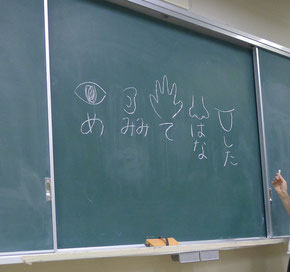 め
みみ
て
はな
した